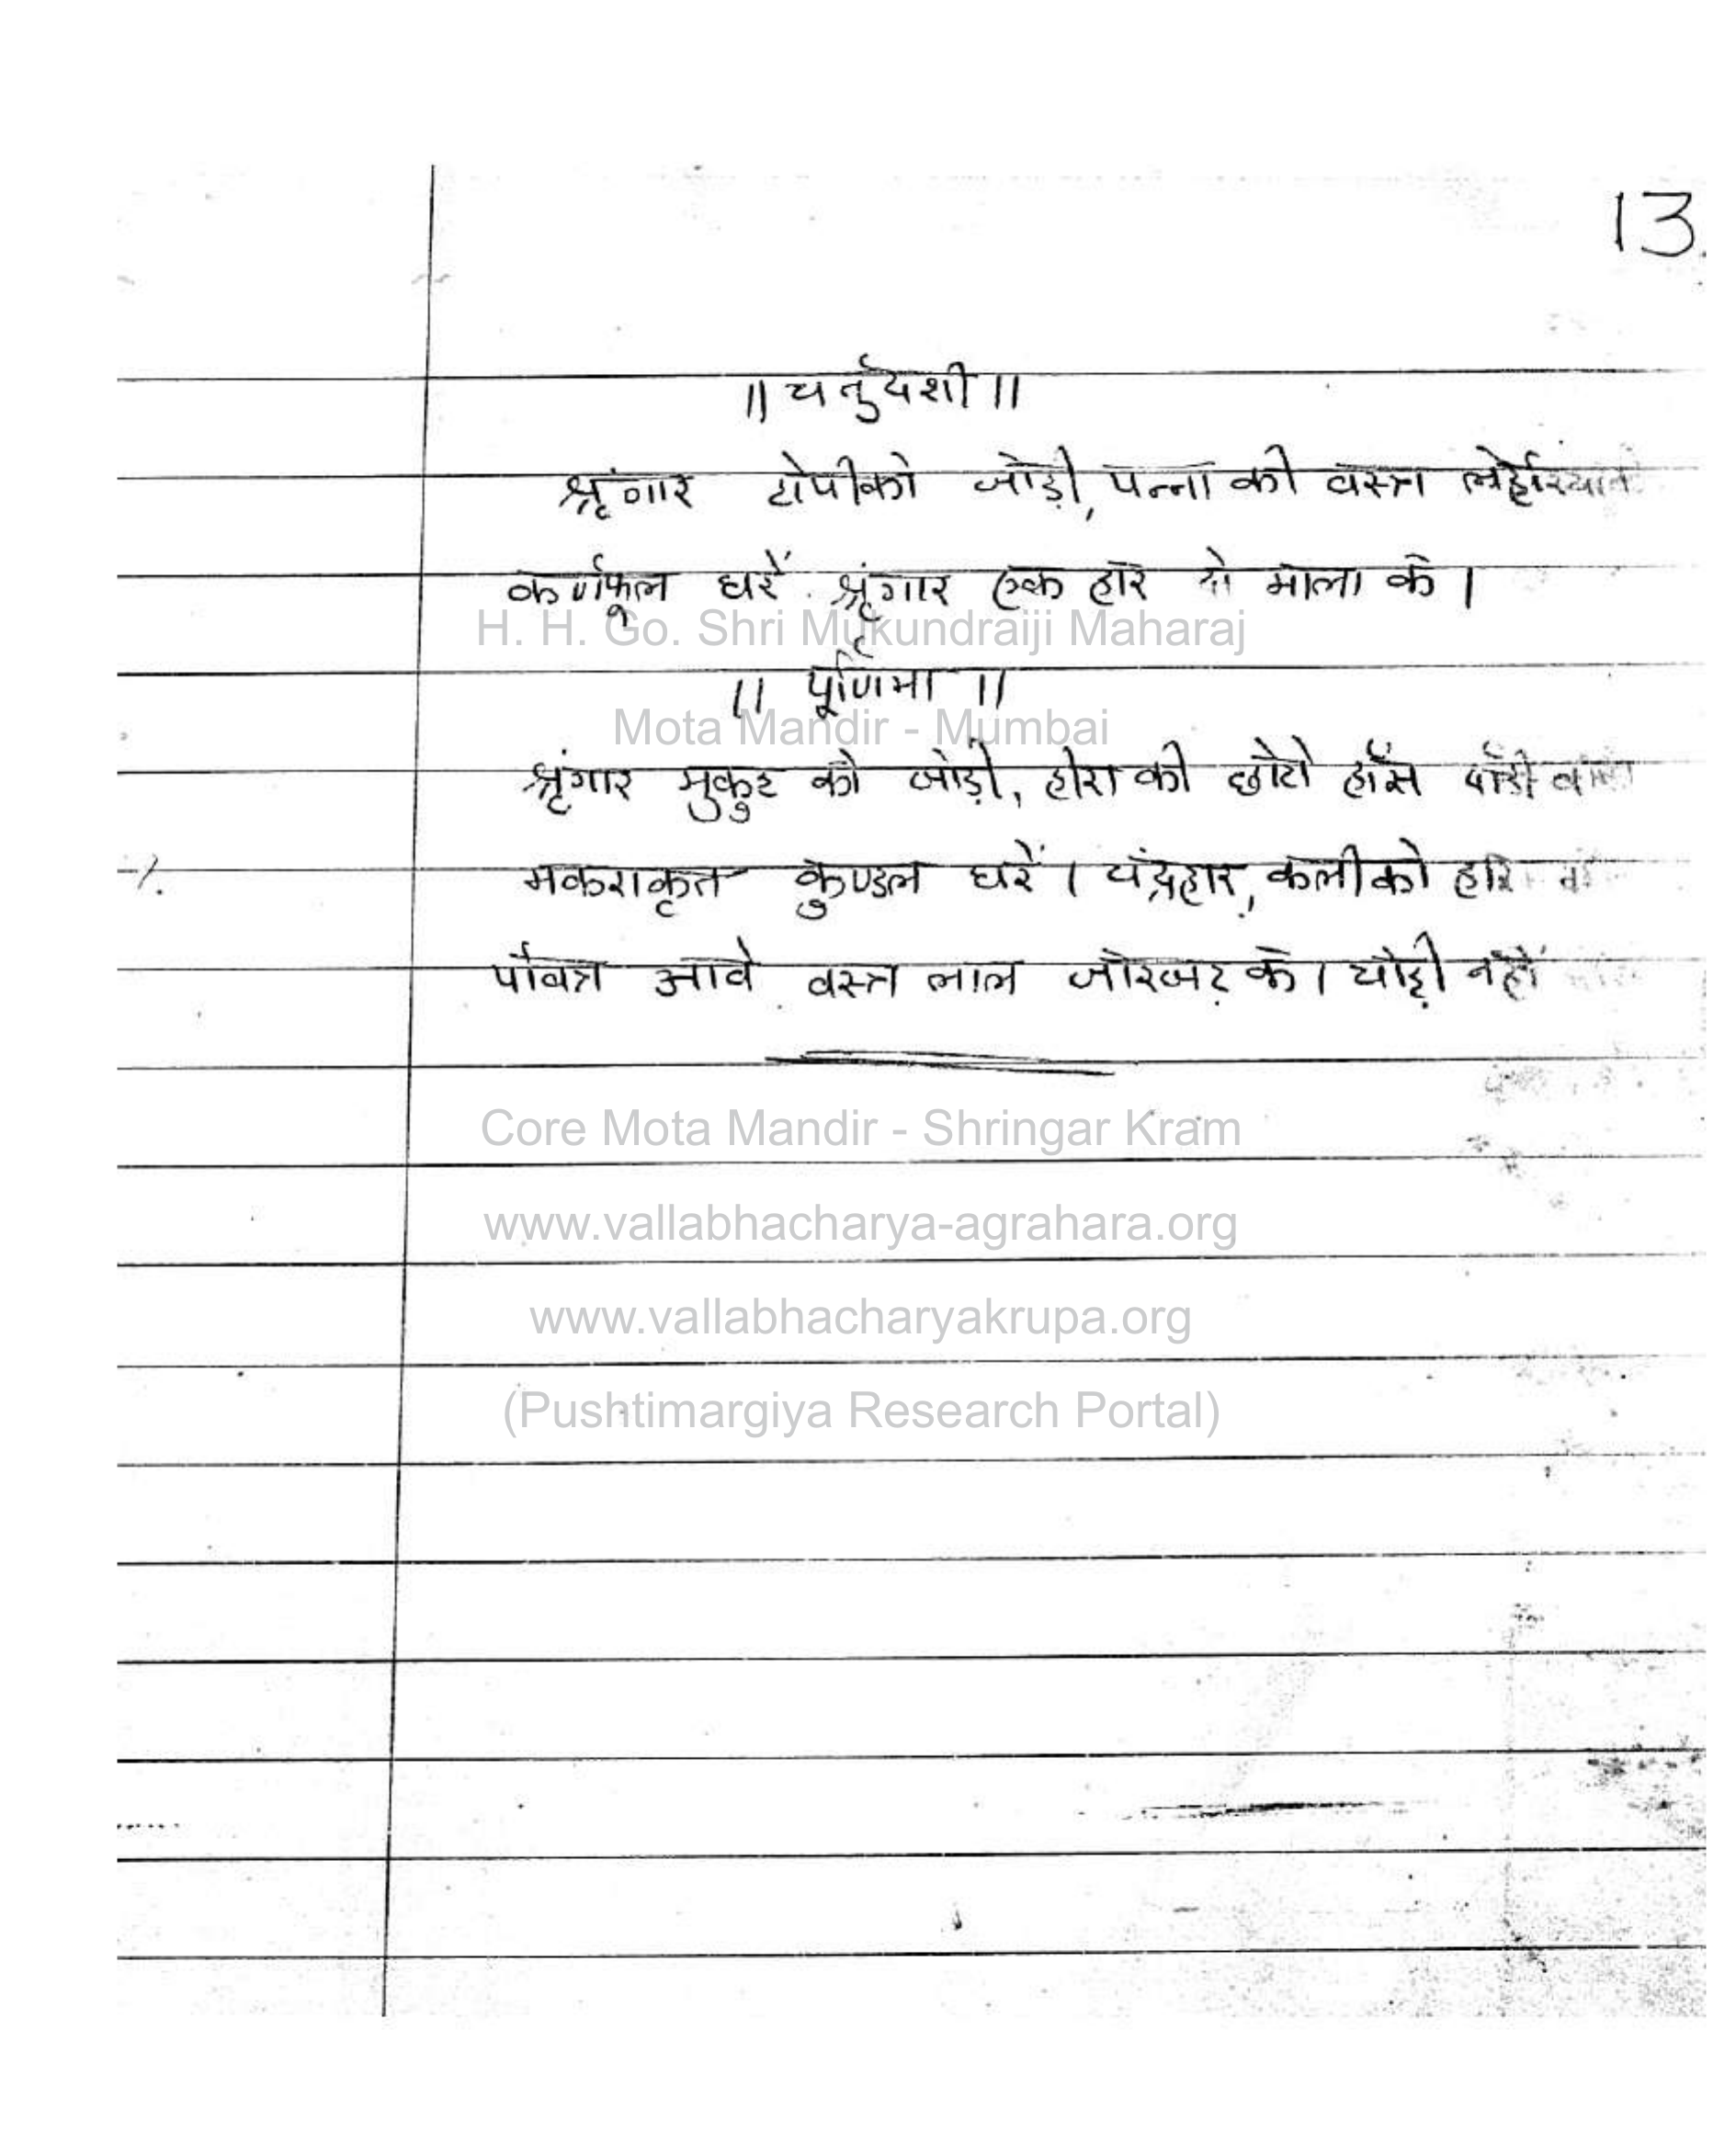 13.
॥ चर्तुदशी ॥
श्रृंगार टोपीको जोड़ी, पन्ना को वस्त्र
कर्णफूल धरें श्रृंगार एक हार दो माला के ।
H. H. Go. Shri Mukundraiji Maharaj
॥ पूर्णिमा ॥
Mota Mandir - Mumbai
श्रृंगार मुकुट को जोड़ी, हीरा की छोटी हाँस
मकराकृत कुण्डल धरें । चंद्रहार, कलीको हार
पवित्रा आवे वस्त्र लाल जोरजट के । चोटी नहीं
Core Mota Mandir - Shringar Kram
www.vallabhacharya-agrahara.org
www.vallabhacharyakrupa.org
(Pushtimargiya Research Portal)